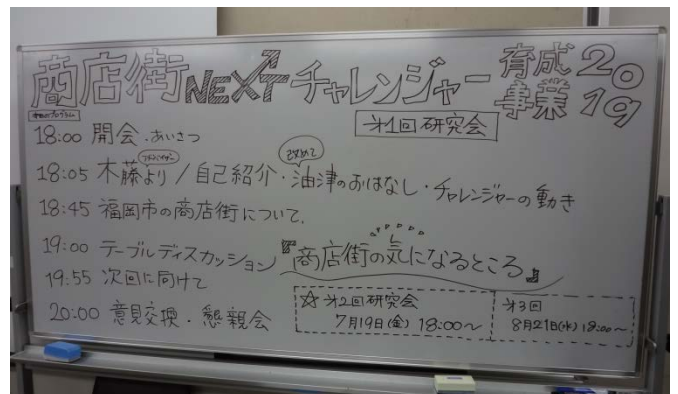 商店街NEXTチャレンジャー育成事業2019
本日のプログラム
才1回研究会
18:00 開会・あいさつ
アドバイザー
改めて
18:05 木藤より/自己紹介・油津のおはなし・チャレンジャーの動き
18:45 福岡市の商店街について.
19:00 テーブルディスカッション『商店街の気になるところ』
19:55 次回に向けて
20:00 意見交換・懇親会
☆才2回研究会
7月19日(金) 18:00~
才3回
8月21日(水) 18:00~